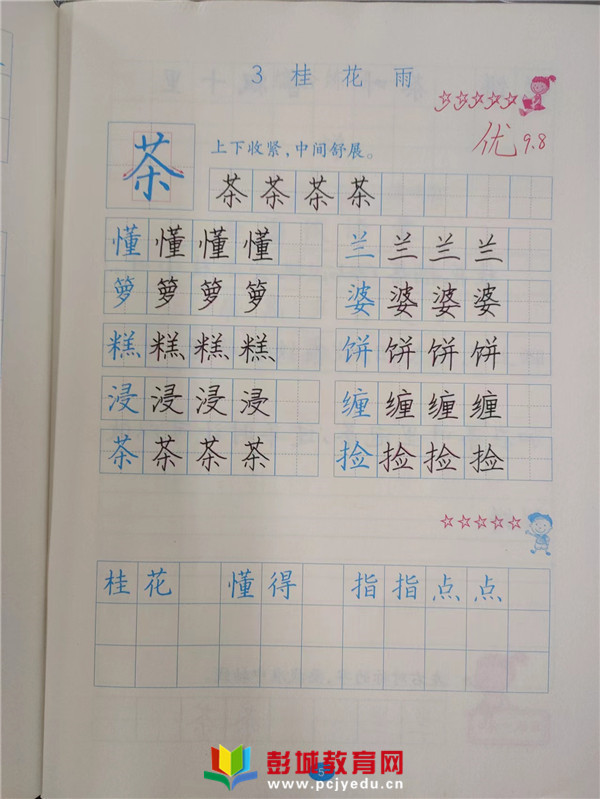 3 桂花雨
优 9.8
茶 上下收紧,中间舒展。
茶茶茶茶
懂懂懂懂 兰兰兰兰
箩箩箩箩 婆婆婆婆
糕糕糕糕 饼饼饼饼
浸浸浸浸 缠缠缠缠
茶茶茶茶 捡捡捡捡
桂花 懂得 指指点点
5
彭城教育网
www.pcjyedu.cn